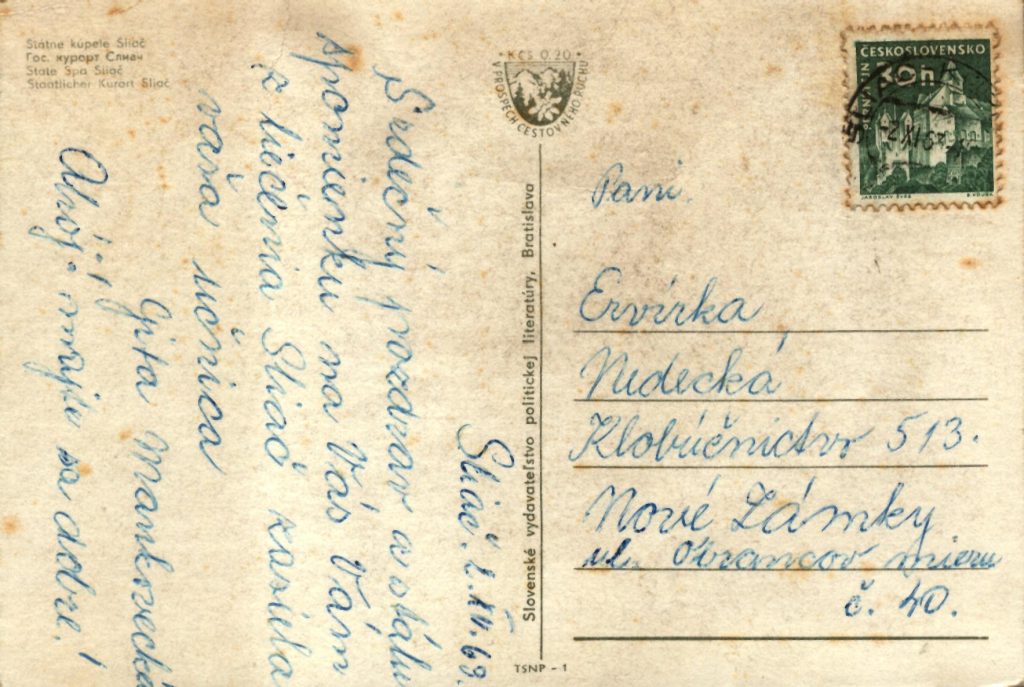 Státne kúpele Sliač
Гос. курорт Слиач
State Spa Sliač
Staatlicher Kurort Sliač
Sliač. 2. XII. 63.
Srdečný pozdrav a stálu
spomienku na Vás Vám
z liečenia Sliač zasiela
vaša učnica
Gita Mankovecká
Ahoj! majte sa dobre!
KČS 0.20
V PROSPECH CESTOVNÉHO RUCHU
Slovenské vydavateľstvo politickej literatúry, Bratislava
TSNP - 1
ČESKOSLOVENSKO
30h
SMOLENICE
JAROSLAV ŠVÁB
Pani
Ervírka
Nedecká
Klobúčníctvo 513.
Nové Zámky
ul. Obrancov mieru
č. 40.